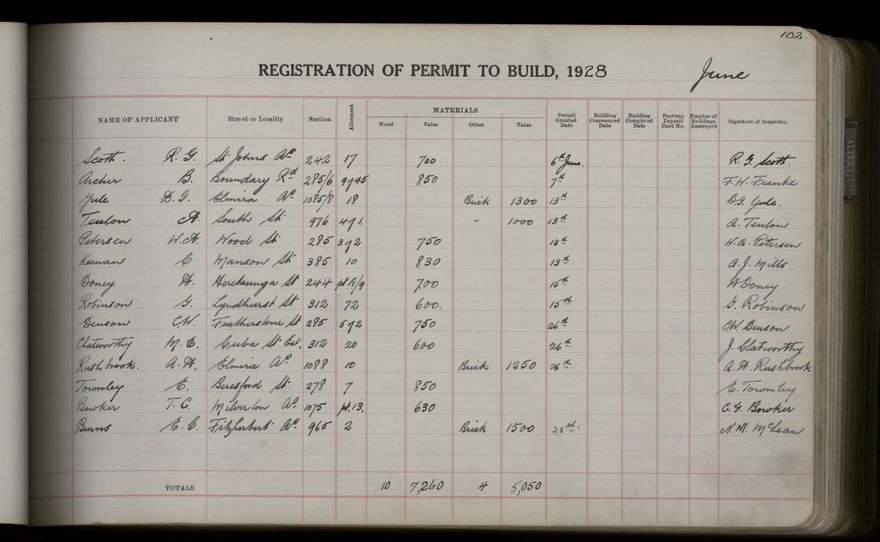 102.
REGISTRATION OF PERMIT TO BUILD, 1928 June
NAME OF APPLICANT Street or Locality Section Allotment MATERIALS Wood Value Other Value Permit Granted Date Building Commenced Date Building Completed Date Footway Deposit Card No. Number of Buildings Destroyed Signature of Inspector.
Scott. R. G. St Johns Av. 242 17 700 6th June. R. G. Scott.
Archer B. Boundary Rd 285/6 850 7th F. W. Franke
Yule D. G. Elmira Av. 1085/8 18 Brick 1300 13th D. G. Yule.
Teulon A. South St 976 4 & 1. " 1000 13th A. Teulon
Petersen W. A. Wood St 285 3 & 2 750 13th W. A. Petersen
Keenan C Manson St 385 10 830 13th A. J. Mills
Doney H. Heretaunga St 244 pt 15/9 700 15th H Doney
Robinson G. Lyndhurst St 312 72 600 15th G. Robinson
Denson C W. Featherstone St 285 5 & 2 750 26th C W. Denson
Clatworthy M. E. Cuba St Ext. 312 20 600 26th J. Clatworthy
Rushbrook. A. H. Elmira Av. 1088 10 Brick 1250 26th A. H. Rushbrook
Townley E. Beresford St 278 7 850 E. Townley
Bowker T. C. Milverton Av. 1075 pt. 13. 630 C. G. Bowker
Burns E. C. Fitzherbert Av. 965 2 Brick 1500 N. M. McLean
TOTALS 10 7,260 4 5,050